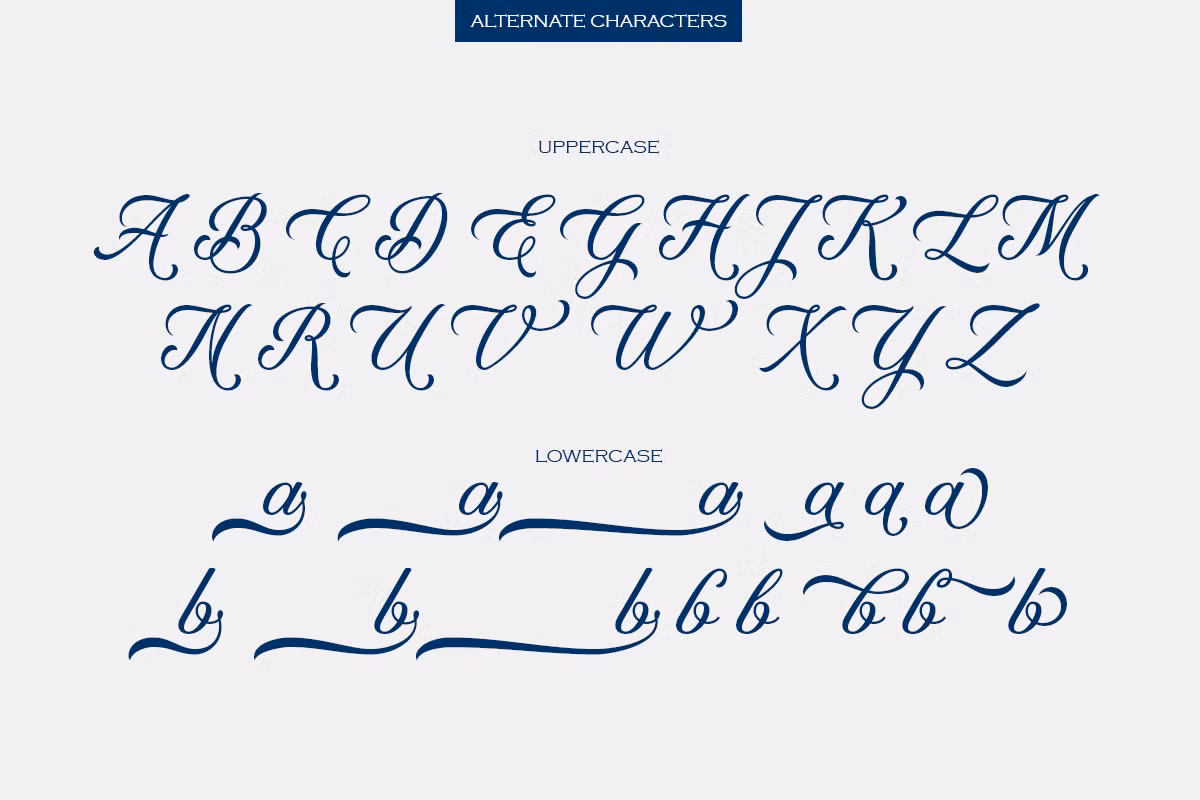 ALTERNATE CHARACTERS
UPPERCASE
A B C D E G H J K L M
N R U V W X Y Z
LOWERCASE
a a a a a a
b b b b b b b b